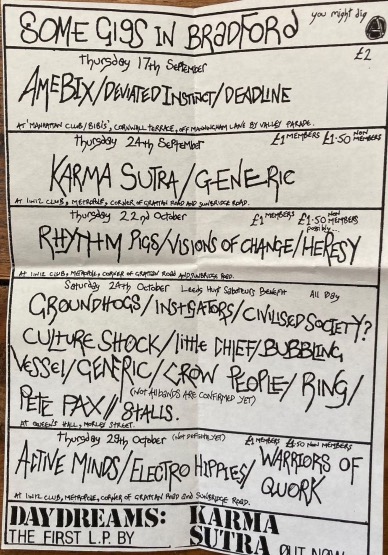 SOME GIGS IN BRADFORD you might dig
£2
Thursday 17th September
AMEBIX/DEVIATED INSTINCT/DEADLINE
AT 'MANHATTAN CLUB/BIBI'S', CORNWALL TERRACE, OFF MANNINGHAM LANE BY VALLEY PARADE.
Thursday 24th September £1 MEMBERS £1.50 NON MEMBERS
KARMA SUTRA/GENERIC
AT 1IN12 CLUB, METROPOLE, CORNER OF GRATTAN ROAD AND SUNBRIDGE ROAD.
Thursday 22nd October £1 MEMBERS £1.50 NON MEMBERS
possibly...
RHYTHM PIGS/VISIONS OF CHANGE/HERESY
AT 1IN12 CLUB, METROPOLE, CORNER OF GRATTAN ROAD AND SUNBRIDGE ROAD.
Saturday 24th October Leeds Hunt Saboteurs Benefit All Day
GROUNDHOGS/INSTIGATORS/CIVILISED SOCIETY?
CULTURE SHOCK/little CHIEF/BUBBLING
VESSEL/GENERIC/CROW PEOPLE/RING/
(NOT ALL BANDS ARE CONFIRMED YET)
PETE PAX// STALLS.
AT QUEEN'S HALL, MORLEY STREET.
Thursday 29th October (NOT DEFINITE YET) £1 MEMBERS £1.50 NON MEMBERS
ACTIVE MINDS/ELECTRO HIPPIES/WARRIORS OF QUORK
AT 1IN12 CLUB, METROPOLE, CORNER OF GRATTAN ROAD AND SUNBRIDGE ROAD.
DAYDREAMS: KARMA
THE FIRST L.P. BY SUTRA OUT NOW